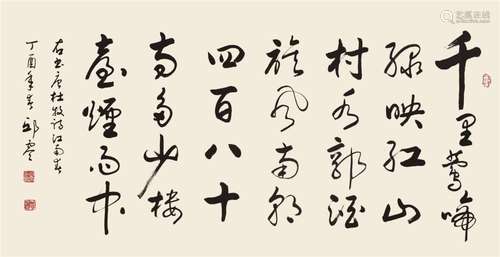 千里鶯啼
绿映红山
村水郭酒
旂风南朝
四百八十
寺多少楼
臺煙雨中
右书唐杜牧诗江南春
丁酉年春